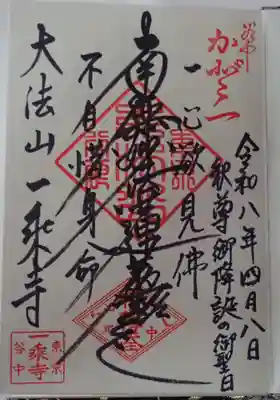 谷中
令和八年四月八日
釈尊御降誕の御聖日
一心欲見佛
南無妙法蓮華経
不自惜身命
大法山一乘寺
東京
一乘寺
谷中